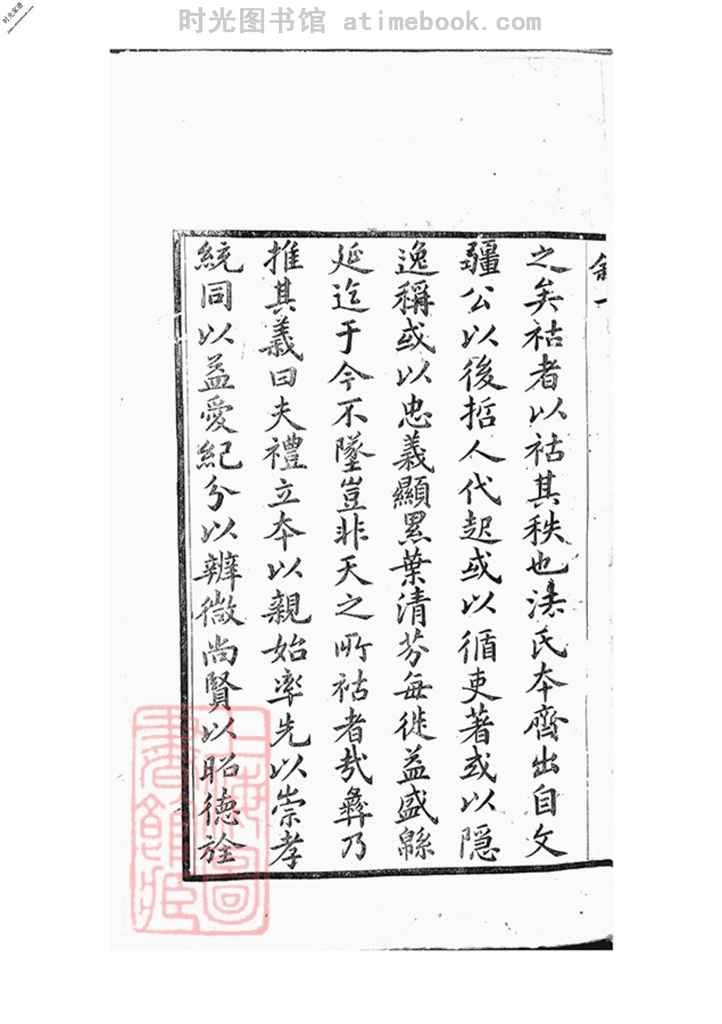 时光图书馆 atimebook.com
时光家谱
www.atimebook.com
之矣祜者以祜其秩也法氏本齊出自文
疆公以後哲人代起或以循吏著或以隠
逸稱或以忠義顯累葉清芬每徙益盛緜
延迄于今不墜豈非天之所祜者哉彝乃
推其義曰夫禮立本以親始率先以崇孝
統同以益愛紀分以辨微尚賢以昭德詮
上海圖
書館藏